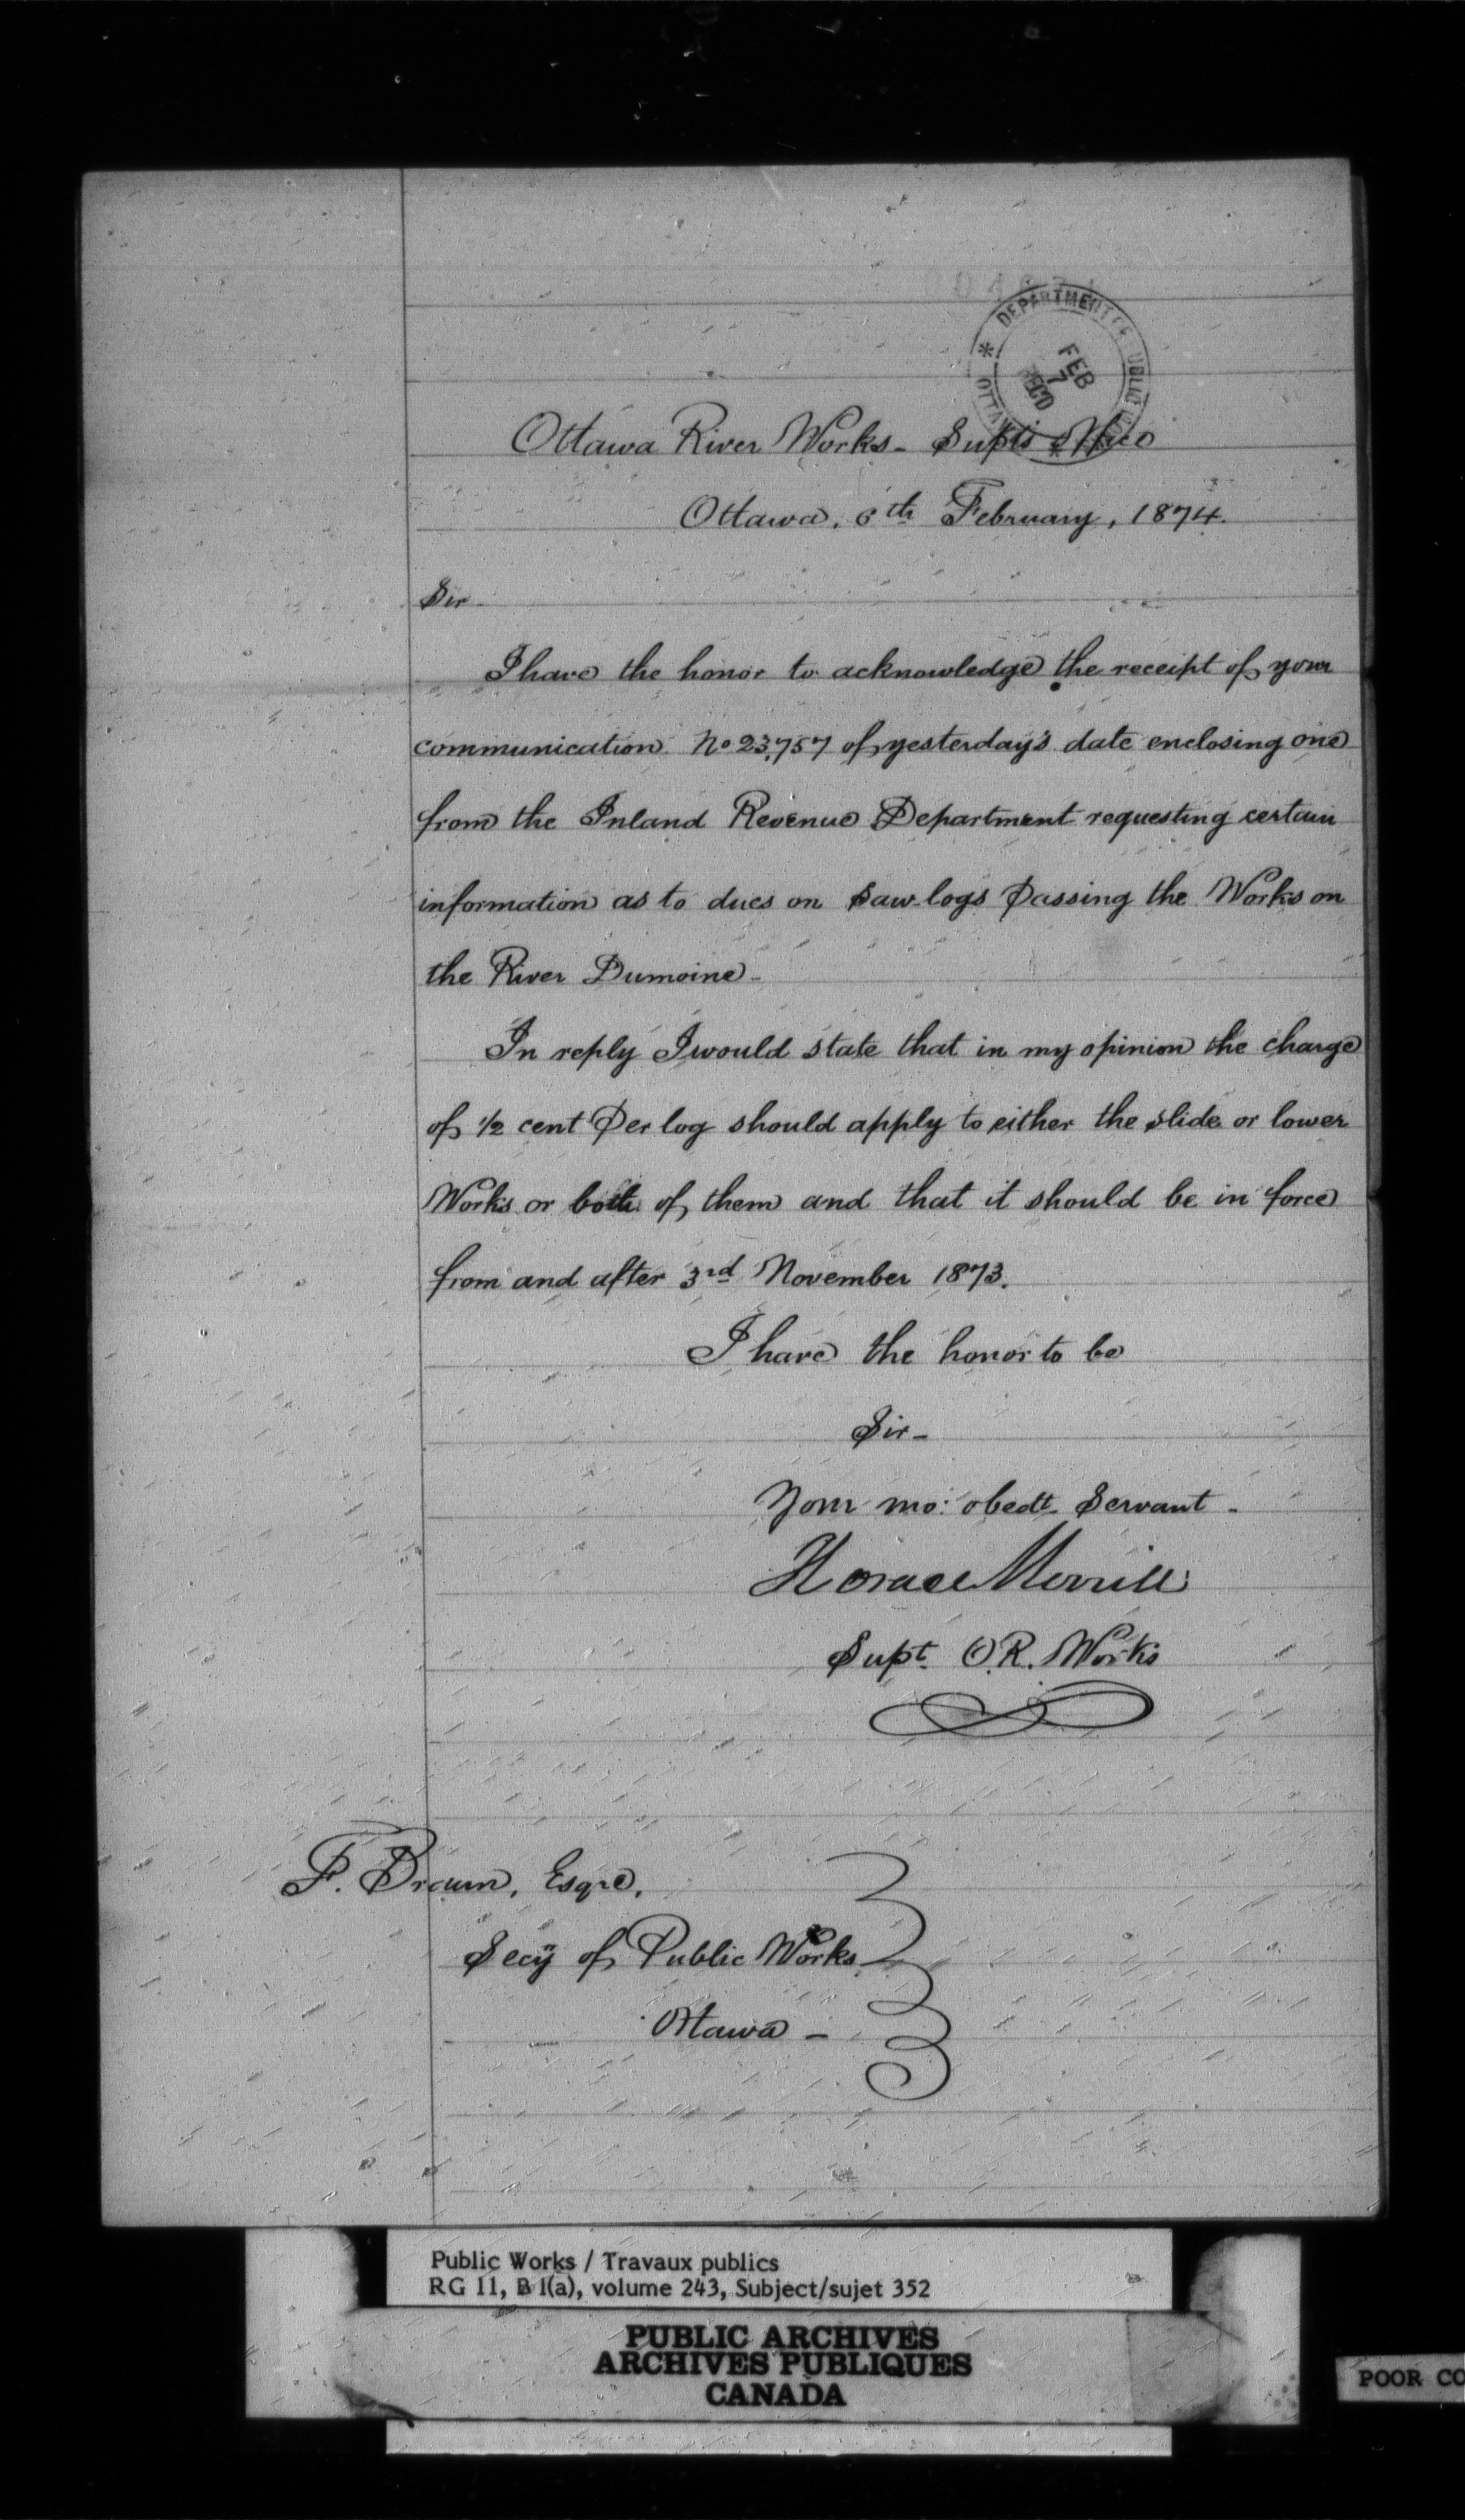 DEPARTMENT OF PUBLIC
OTTAWA
FEB
7
RECD
Ottawa River Works - Supts Office
Ottawa, 6th February, 1874.
Sir
I have the honor to acknowledge the receipt of your
communication No 23,757 of yesterday's date enclosing one
from the Inland Revenue Department requesting certain
information as to dues on Saw-logs Passing the Works on
the River Dumoine -
In reply I would state that in my opinion the charge
of 1/2 cent Per log should apply to either the slide or lower
Works or both of them and that it should be in force
from and after 3rd November 1873.
I have the honor to be
Sir -
Your mo: obedt. Servant -
Horace Merrill
Supt. O.R. Works
F. Braun, Esqre,
Secy of Public Works
Ottawa -
Public Works / Travaux publics
RG 11, B 1(a), volume 243, Subject/sujet 352
PUBLIC ARCHIVES
ARCHIVES PUBLIQUES
CANADA
POOR CO